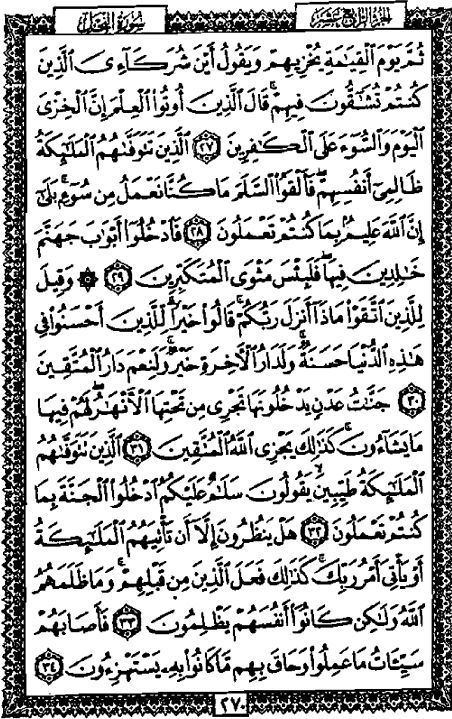 الجزء الرابع عشر
سورة النحل
ثُمَّ يَوْمَ ٱلْقِيَٰمَةِ يُخْزِيهِمْ وَيَقُولُ أَيْنَ شُرَكَآءِىَ ٱلَّذِينَ
كُنتُمْ تُشَٰٓقُّونَ فِيهِمْ ۚ قَالَ ٱلَّذِينَ أُوتُوا۟ ٱلْعِلْمَ إِنَّ ٱلْخِزْىَ
ٱلْيَوْمَ وَٱلسُّوٓءَ عَلَى ٱلْكَٰفِرِينَ ٢٧ ٱلَّذِينَ تَتَوَفَّىٰهُمُ ٱلْمَلَٰٓئِكَةُ
ظَالِمِىٓ أَنفُسِهِمْ ۖ فَأَلْقَوُا۟ ٱلسَّلَمَ مَا كُنَّا نَعْمَلُ مِن سُوٓءٍۭ ۚ بَلَىٰٓ
إِنَّ ٱللَّهَ عَلِيمٌۢ بِمَا كُنتُمْ تَعْمَلُونَ ٢٨ فَٱدْخُلُوٓا۟ أَبْوَٰبَ جَهَنَّمَ
خَٰلِدِينَ فِيهَا ۖ فَلَبِئْسَ مَثْوَى ٱلْمُتَكَبِّرِينَ ٢٩ ۞ وَقِيلَ
لِلَّذِينَ ٱتَّقَوْا۟ مَاذَآ أَنزَلَ رَبُّكُمْ ۚ قَالُوا۟ خَيْرًا ۗ لِّلَّذِينَ أَحْسَنُوا۟ فِى
هَٰذِهِ ٱلدُّنْيَا حَسَنَةٌ ۚ وَلَدَارُ ٱلْءَاخِرَةِ خَيْرٌ ۚ وَلَنِعْمَ دَارُ ٱلْمُتَّقِينَ
٣٠ جَنَّٰتُ عَدْنٍ يَدْخُلُونَهَا تَجْرِى مِن تَحْتِهَا ٱلْأَنْهَٰرُ ۖ لَهُمْ فِيهَا
مَا يَشَآءُونَ ۚ كَذَٰلِكَ يَجْزِى ٱللَّهُ ٱلْمُتَّقِينَ ٣١ ٱلَّذِينَ تَتَوَفَّىٰهُمُ
ٱلْمَلَٰٓئِكَةُ طَيِّبِينَ ۙ يَقُولُونَ سَلَٰمٌ عَلَيْكُمُ ٱدْخُلُوا۟ ٱلْجَنَّةَ بِمَا
كُنتُمْ تَعْمَلُونَ ٣٢ هَلْ يَنظُرُونَ إِلَّآ أَن تَأْتِيَهُمُ ٱلْمَلَٰٓئِكَةُ
أَوْ يَأْتِىَ أَمْرُ رَبِّكَ ۚ كَذَٰلِكَ فَعَلَ ٱلَّذِينَ مِن قَبْلِهِمْ ۚ وَمَا ظَلَمَهُمُ
ٱللَّهُ وَلَٰكِن كَانُوٓا۟ أَنفُسَهُمْ يَظْلِمُونَ ٣٣ فَأَصَابَهُمْ
سَيِّـَٔاتُ مَا عَمِلُوا۟ وَحَاقَ بِهِم مَّا كَانُوا۟ بِهِۦ يَسْتَهْزِءُونَ ٣٤
٢٧٠